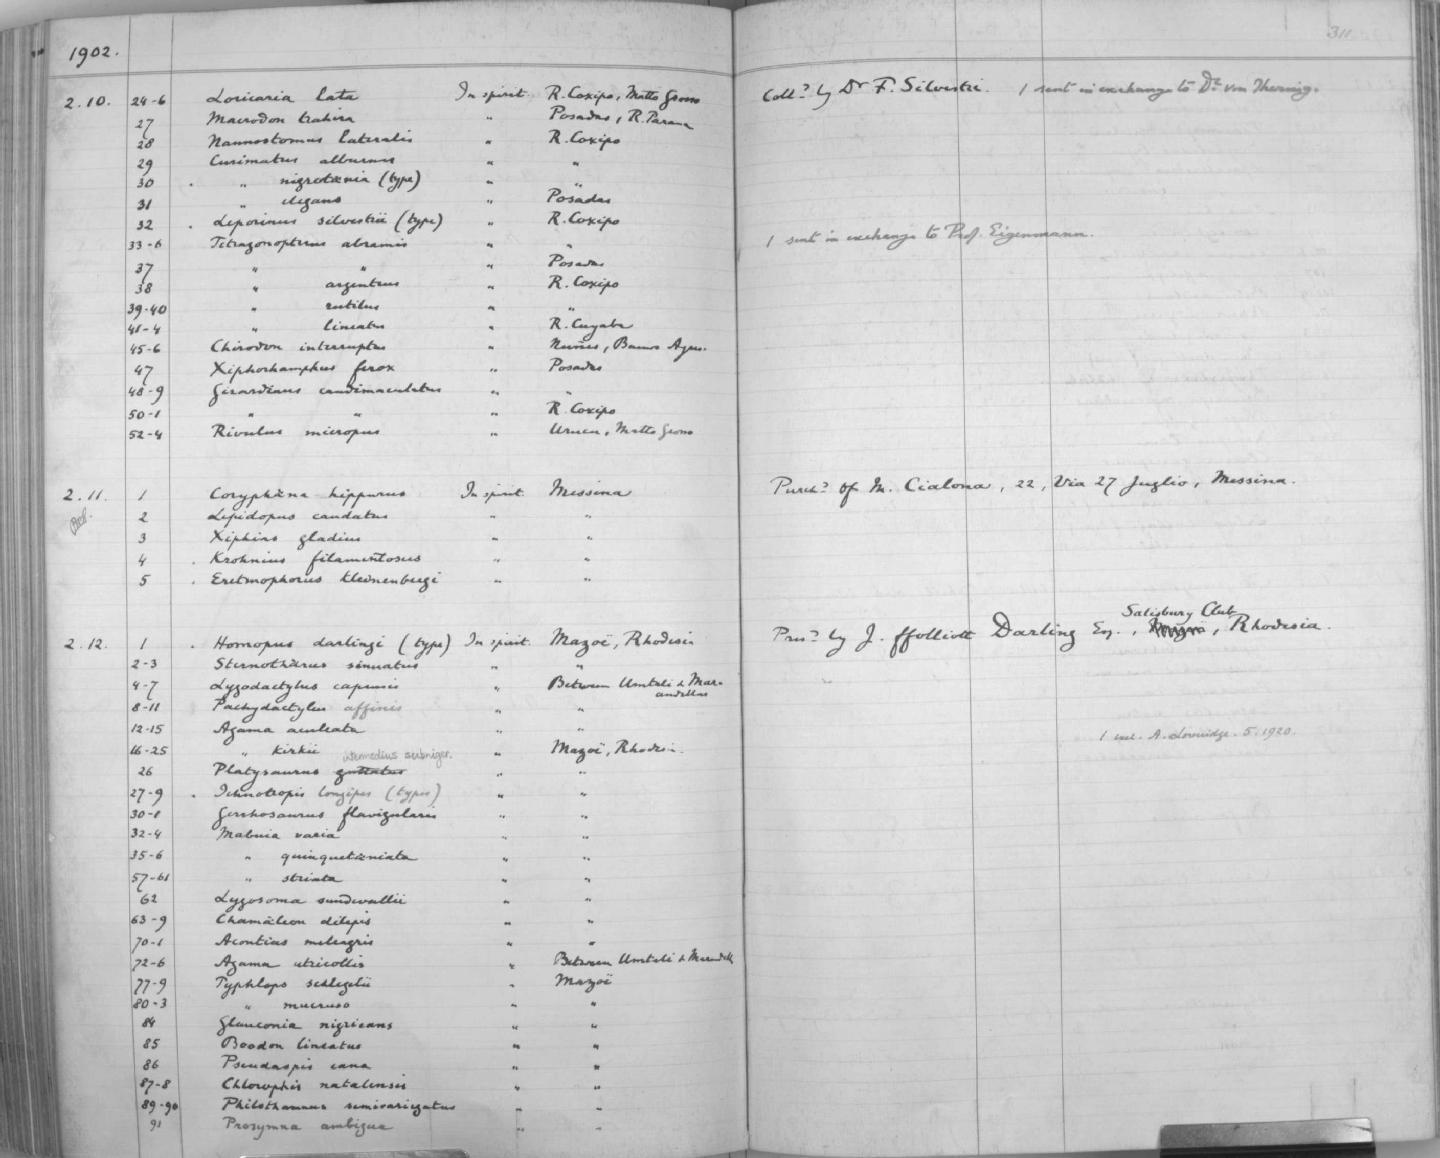 1902.
311
2.10. 24-6 Loricaria lata In spirit R. Coxipo, Matto Grosso Coll.d by Dr F. Silvestri. 1 sent in exchange to Dr. von Ihering.
27 Macrodon trahira " Posadas, R. Parana
28 Nannostomus lateralis " R. Coxipo
29 Curimatus alburnus " "
30 . " nigrotænia (type) " "
31 " elegans " Posadas
32 . Leporinus silvestrii (type) " R. Coxipo
33-6 Tetragonopterus abramis " " 1 sent in exchange to Prof. Eigenmann.
37 " " " Posadas
38 " argenteus " R. Coxipo
39-40 " rutilus " "
41-4 " lineatus " R. Cuyaba
45-6 Chirodon interruptus " Nunes, Buenos Ayres.
47 Xiphorhamphus ferox " Posadas
48-9 Girardinus caudimaculatus " "
50-1 " " " R. Coxipo
52-4 Rivulus micropus " Urucu, Matto Grosso
2.11. 1 Coryphæna hippurus In spirit Messina Purch.d of M. Cialona, 22, Via 27 Juglio, Messina.
2 Lepidopus caudatus " "
3 Xiphias gladius " "
4 . Krohnius filamentosus " "
5 . Eretmophorus kleinenbergi " "
2.12. 1 . Homopus darlingi (type) In spirit. Mazoë, Rhodesia Pres.d by J. ffolliott Darling Esq., Salisbury Club, Rhodesia.
2-3 Sternothærus sinuatus " "
4-7 Lygodactylus capensis " Between Umtali & Marandellas
8-11 Pachydactylus affinis " "
12-15 Agama aculeata " "
16-25 " kirkii " Mazoë, Rhodesia. 1 excl. A. Loveridge. 5.1920.
26 Platysaurus guttatus intermedius subniger. " "
27-9 . Ichnotropis longipes (types) " "
30-1 Gerrhosaurus flavigularis " "
32-4 Mabuia varia " "
35-6 " quinquetæniata " "
57-61 " striata " "
62 Lygosoma sundevallii " "
63-9 Chamæleon dilepis " "
70-1 Acontias meleagris " "
72-6 Agama atricollis " Between Umtali & Marandell
77-9 Typhlops schlegelii " Mazoë
80-3 " mucruso " "
84 Glauconia nigricans " "
85 Boodon lineatus " "
86 Pseudaspis cana " "
87-8 Chlorophis natalensis " "
89-90 Philothamnus semivariegatus " "
91 Prosymna ambigua " "